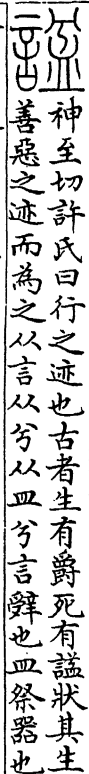 諡
神至切許氏曰行之迹也古者生有爵死有諡狀其生
善惡之迹而為之从言从兮从皿兮言辤也皿祭器也